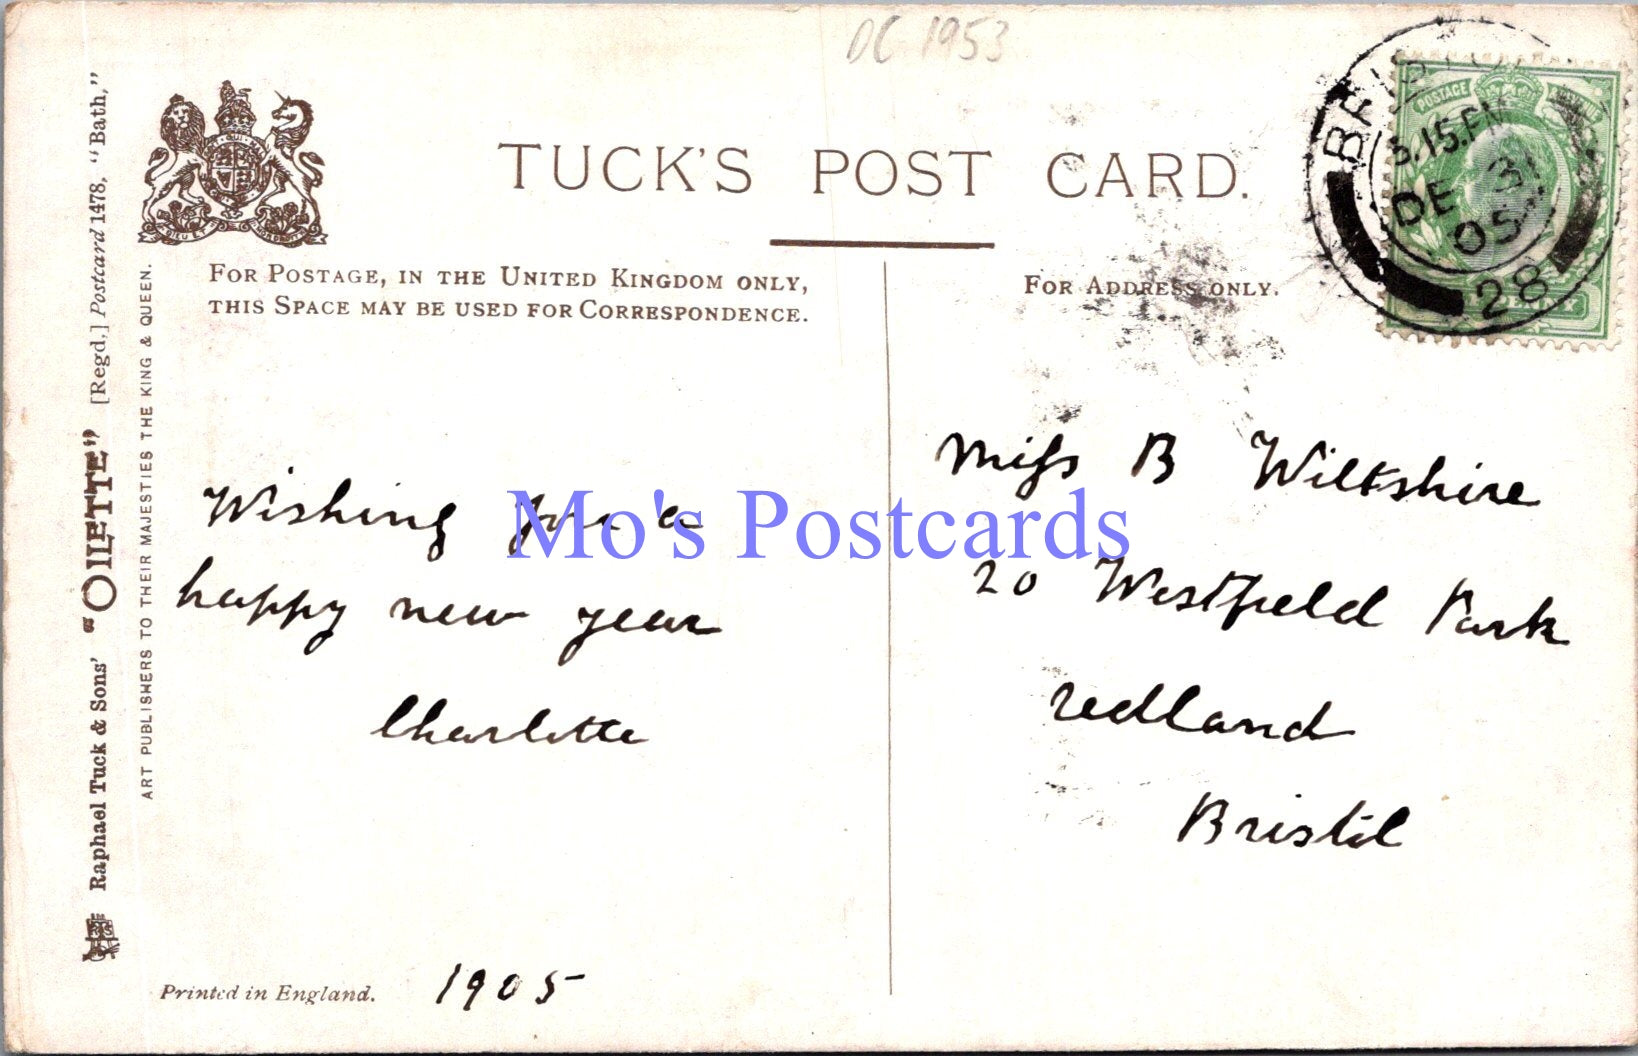 DC 1953
TUCK'S POST CARD.
FOR POSTAGE, IN THE UNITED KINGDOM ONLY,
THIS SPACE MAY BE USED FOR CORRESPONDENCE.
FOR ADDRESS ONLY.
BRISTOL
5.15.PM
DE 31
05
28
POSTAGE
Wishing you a
happy new year
Charlotte
1905
Miss B Wiltshire
20 Westfield Park
Redland
Bristol
Mo's Postcards
Printed in England.
Raphael Tuck & Sons' "OILETTE" [Regd.] Postcard 1478, "Bath,"
ART PUBLISHERS TO THEIR MAJESTIES THE KING & QUEEN.